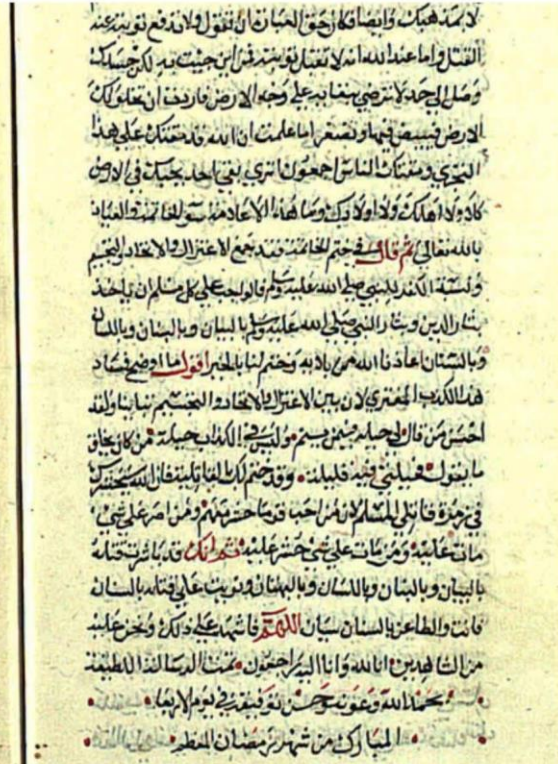 لا بمذهبك وايضا فكان حق العبان ان تقول ولا ندفع توبته عند
القتل واما عند الله انه لا تقبل توبته فمن اين جيت به لكن جهلك
وصل الى حد لا ترضى بمقابه على وجه الارض فاردت ان
الارض فيبيض فيها وتصفر اما علمت ان الله قد مقتك على هذا
التجري ومقتك الناس اجمعون اترى بقى احد يحبك في الارض
كلا ولا اهلك ولا اولادك وما هذا الا علامة سو الخاتمة والعياذ
بالله تعالى ثم قال في ختم الخاتمة فقد جمع الاعتزال والالحاد والتجسيم
ونسبة الكفر للنبي صلى الله عليه وسلم فالواجب على كل مسلم ان ياخذ
بثار الدين وبثار النبي صلى الله عليه وسلم بالبيان وبالبنان وباللسان
وبالسنان اعاذنا الله من بلائه وختم لنا بالخير اقول ما اوضح فساد
هذا الكذب المفتري لان بين الاعتزال والالحاد والتجسيم تباينا ولقد
احسن من قال لي حيلة فيمن ينم وليس في الكذاب حيلة من كان يخلق
ما يقول فحيلتي فيه قليلة وقد ختم لك بالمقابلة فان الله يحشرك
في زمرة قاتلي المسلم لان من احب قوما حشر معهم ومن اصر على شي
مات عليه ومن مات على شي حشر عليه ثم انك قد باشرت قتله
بالبيان وبالبنان وباللسان وبالبهتان ونويت على قتله بالسنان
فانت والطاعن بالسنان سيان اللهم فاشهد على ذلك ونحن عليه
من الشاهدين انا لله وانا اليه راجعون تمت الرسالة اللطيفة
بحمد الله وعونه وحسن توفيقه في يوم الاربعا
المبارك من شهر رمضان المعظم